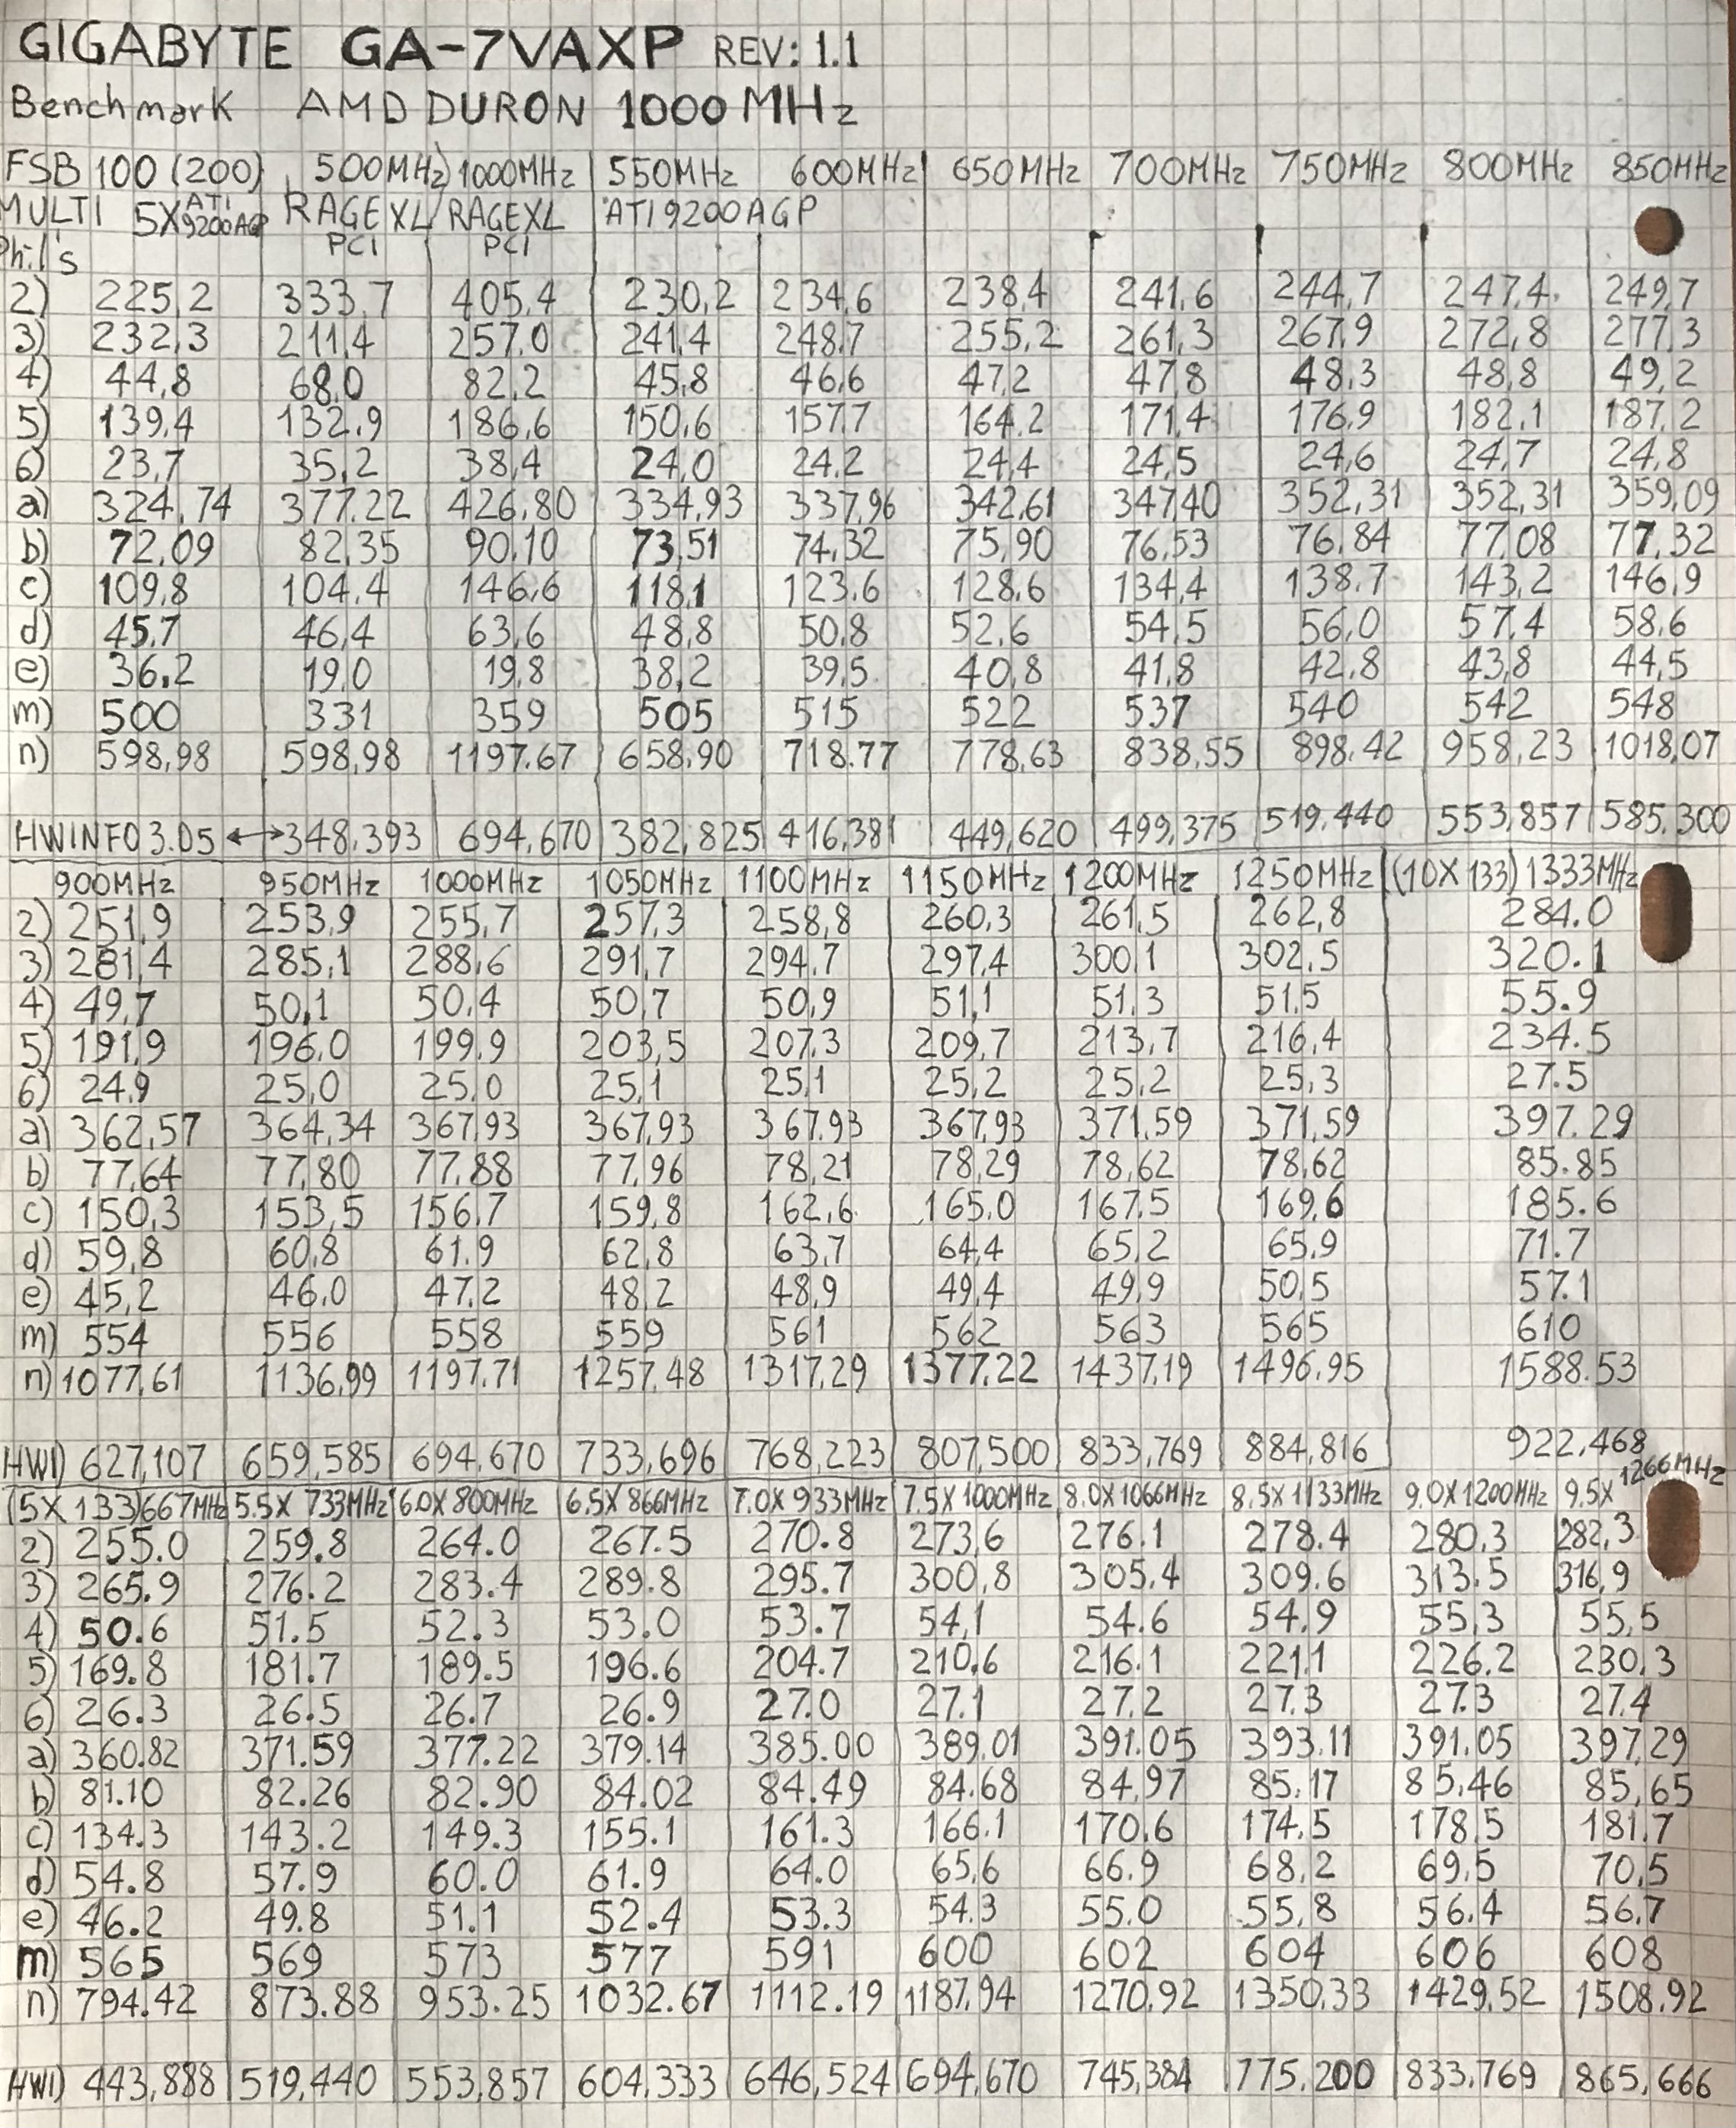 GIGABYTE GA-7VAXP REV: 1.1
Benchmark AMD DURON 1000 MHz
FSB 100 (200) 500MHz) 1000MHz 550MHz 600MHz 650MHz 700MHz 750MHz 800MHz 850MHz
MULTI 5X ATI 9200AGP RAGE XL PCI RAGEXL PCI ATI 9200AGP
Phil's
2) 225,2 333.7 405.4 230,2 234,6 238,4 241,6 244,7 247,4 249,7
3) 232,3 211,4 257,0 241,4 248,7 255,2 261,3 267,9 272,8 277,3
4) 44,8 68,0 82,2 45,8 46,6 47,2 47,8 48,3 48,8 49,2
5) 139,4 132.9 186,6 150,6 157,7 164,2 171,4 176,9 182,1 187,2
6) 23,7 35,2 38,4 24,0 24,2 24,4 24,5 24,6 24,7 24,8
a) 324,74 377,22 426,80 334,93 337,96 342,61 347,40 352,31 352,31 359,09
b) 72,09 82,35 90,10 73,51 74,32 75,90 76,53 76,84 77,08 77,32
c) 109,8 104,4 146,6 118,1 123,6 128,6 134,4 138,7 143,2 146,9
d) 45,7 46,4 63,6 48,8 50,8 52,6 54,5 56,0 57,4 58,6
e) 36,2 19,0 19,8 38,2 39,5 40,8 41,8 42,8 43,8 44,5
m) 500 331 359 505 515 522 537 540 542 548
n) 598,98 598,98 1197.67 658,90 718.77 778,63 838,55 898,42 958,23 1018,07
HWINFO 3.05 ↔ 348,393 694,670 382,825 416,381 449,620 499,375 519,440 553,857 585,300
900MHz 950MHz 1000MHz 1050MHz 1100MHz 1150MHz 1200MHz 1250MHz (10X133) 1333MHz
2) 251,9 253,9 255,7 257,3 258,8 260,3 261,5 262,8 284.0
3) 281,4 285,1 288,6 291,7 294,7 297,4 300,1 302,5 320.1
4) 49,7 50,1 50,4 50,7 50,9 51,1 51,3 51,5 55.9
5) 191,9 196,0 199,9 203,5 207,3 209,7 213,7 216,4 234.5
6) 24,9 25,0 25,0 25,1 25,1 25,2 25,2 25,3 27.5
a) 362,57 364,34 367,93 367,93 367,93 367,93 371,59 371,59 397.29
b) 77,64 77,80 77,88 77,96 78,21 78,29 78,62 78,62 85.85
c) 150,3 153,5 156,7 159,8 162,6 165,0 167,5 169,6 185.6
d) 59,8 60,8 61,9 62,8 63,7 64,4 65,2 65,9 71.7
e) 45,2 46,0 47,2 48,2 48,9 49,4 49,9 50,5 57.1
m) 554 556 558 559 561 562 563 565 610
n) 1077,61 1136,99 1197,71 1257,48 1317,29 1377,22 1437,19 1496,95 1588.53
HWI) 627,107 659,585 694,670 733,696 768,223 807,500 833,769 884,816 922,468
(5X133) 667MHz 5.5X 733MHz 6.0X 800MHz 6.5X 866MHz 7.0X 933MHz 7.5X 1000MHz 8.0X 1066MHz 8.5X 1133MHz 9.0X 1200MHz 9.5X 1266MHz
2) 255.0 259.8 264.0 267.5 270.8 273,6 276.1 278.4 280,3 282,3
3) 265.9 276.2 283.4 289.8 295.7 300,8 305.4 309.6 313.5 316,9
4) 50.6 51.5 52.3 53.0 53.7 54,1 54.6 54.9 55,3 55,5
5) 169.8 181.7 189.5 196.6 204.7 210,6 216.1 221.1 226.2 230,3
6) 26.3 26.5 26.7 26.9 27.0 27.1 27.2 27.3 27.3 27.4
a) 360.82 371.59 377.22 379.14 385.00 389.01 391.05 393.11 391.05 397,29
b) 81.10 82.26 82.90 84.02 84.49 84.68 84,97 85.17 85,46 85,65
c) 134.3 143.2 149.3 155.1 161.3 166.1 170,6 174,5 178,5 181,7
d) 54.8 57.9 60.0 61.9 64.0 65,6 66.9 68,2 69,5 70,5
e) 46.2 49.8 51.1 52.4 53.3 54.3 55.0 55,8 56.4 56,7
m) 565 569 573 577 591 600 602 604 606 608
n) 794.42 873.88 953.25 1032.67 1112.19 1187,94 1270,92 1350,33 1429,52 1508,92
HWI) 443,888 519,440 553,857 604,333 646,524 694,670 745,384 775,200 833,769 865,666